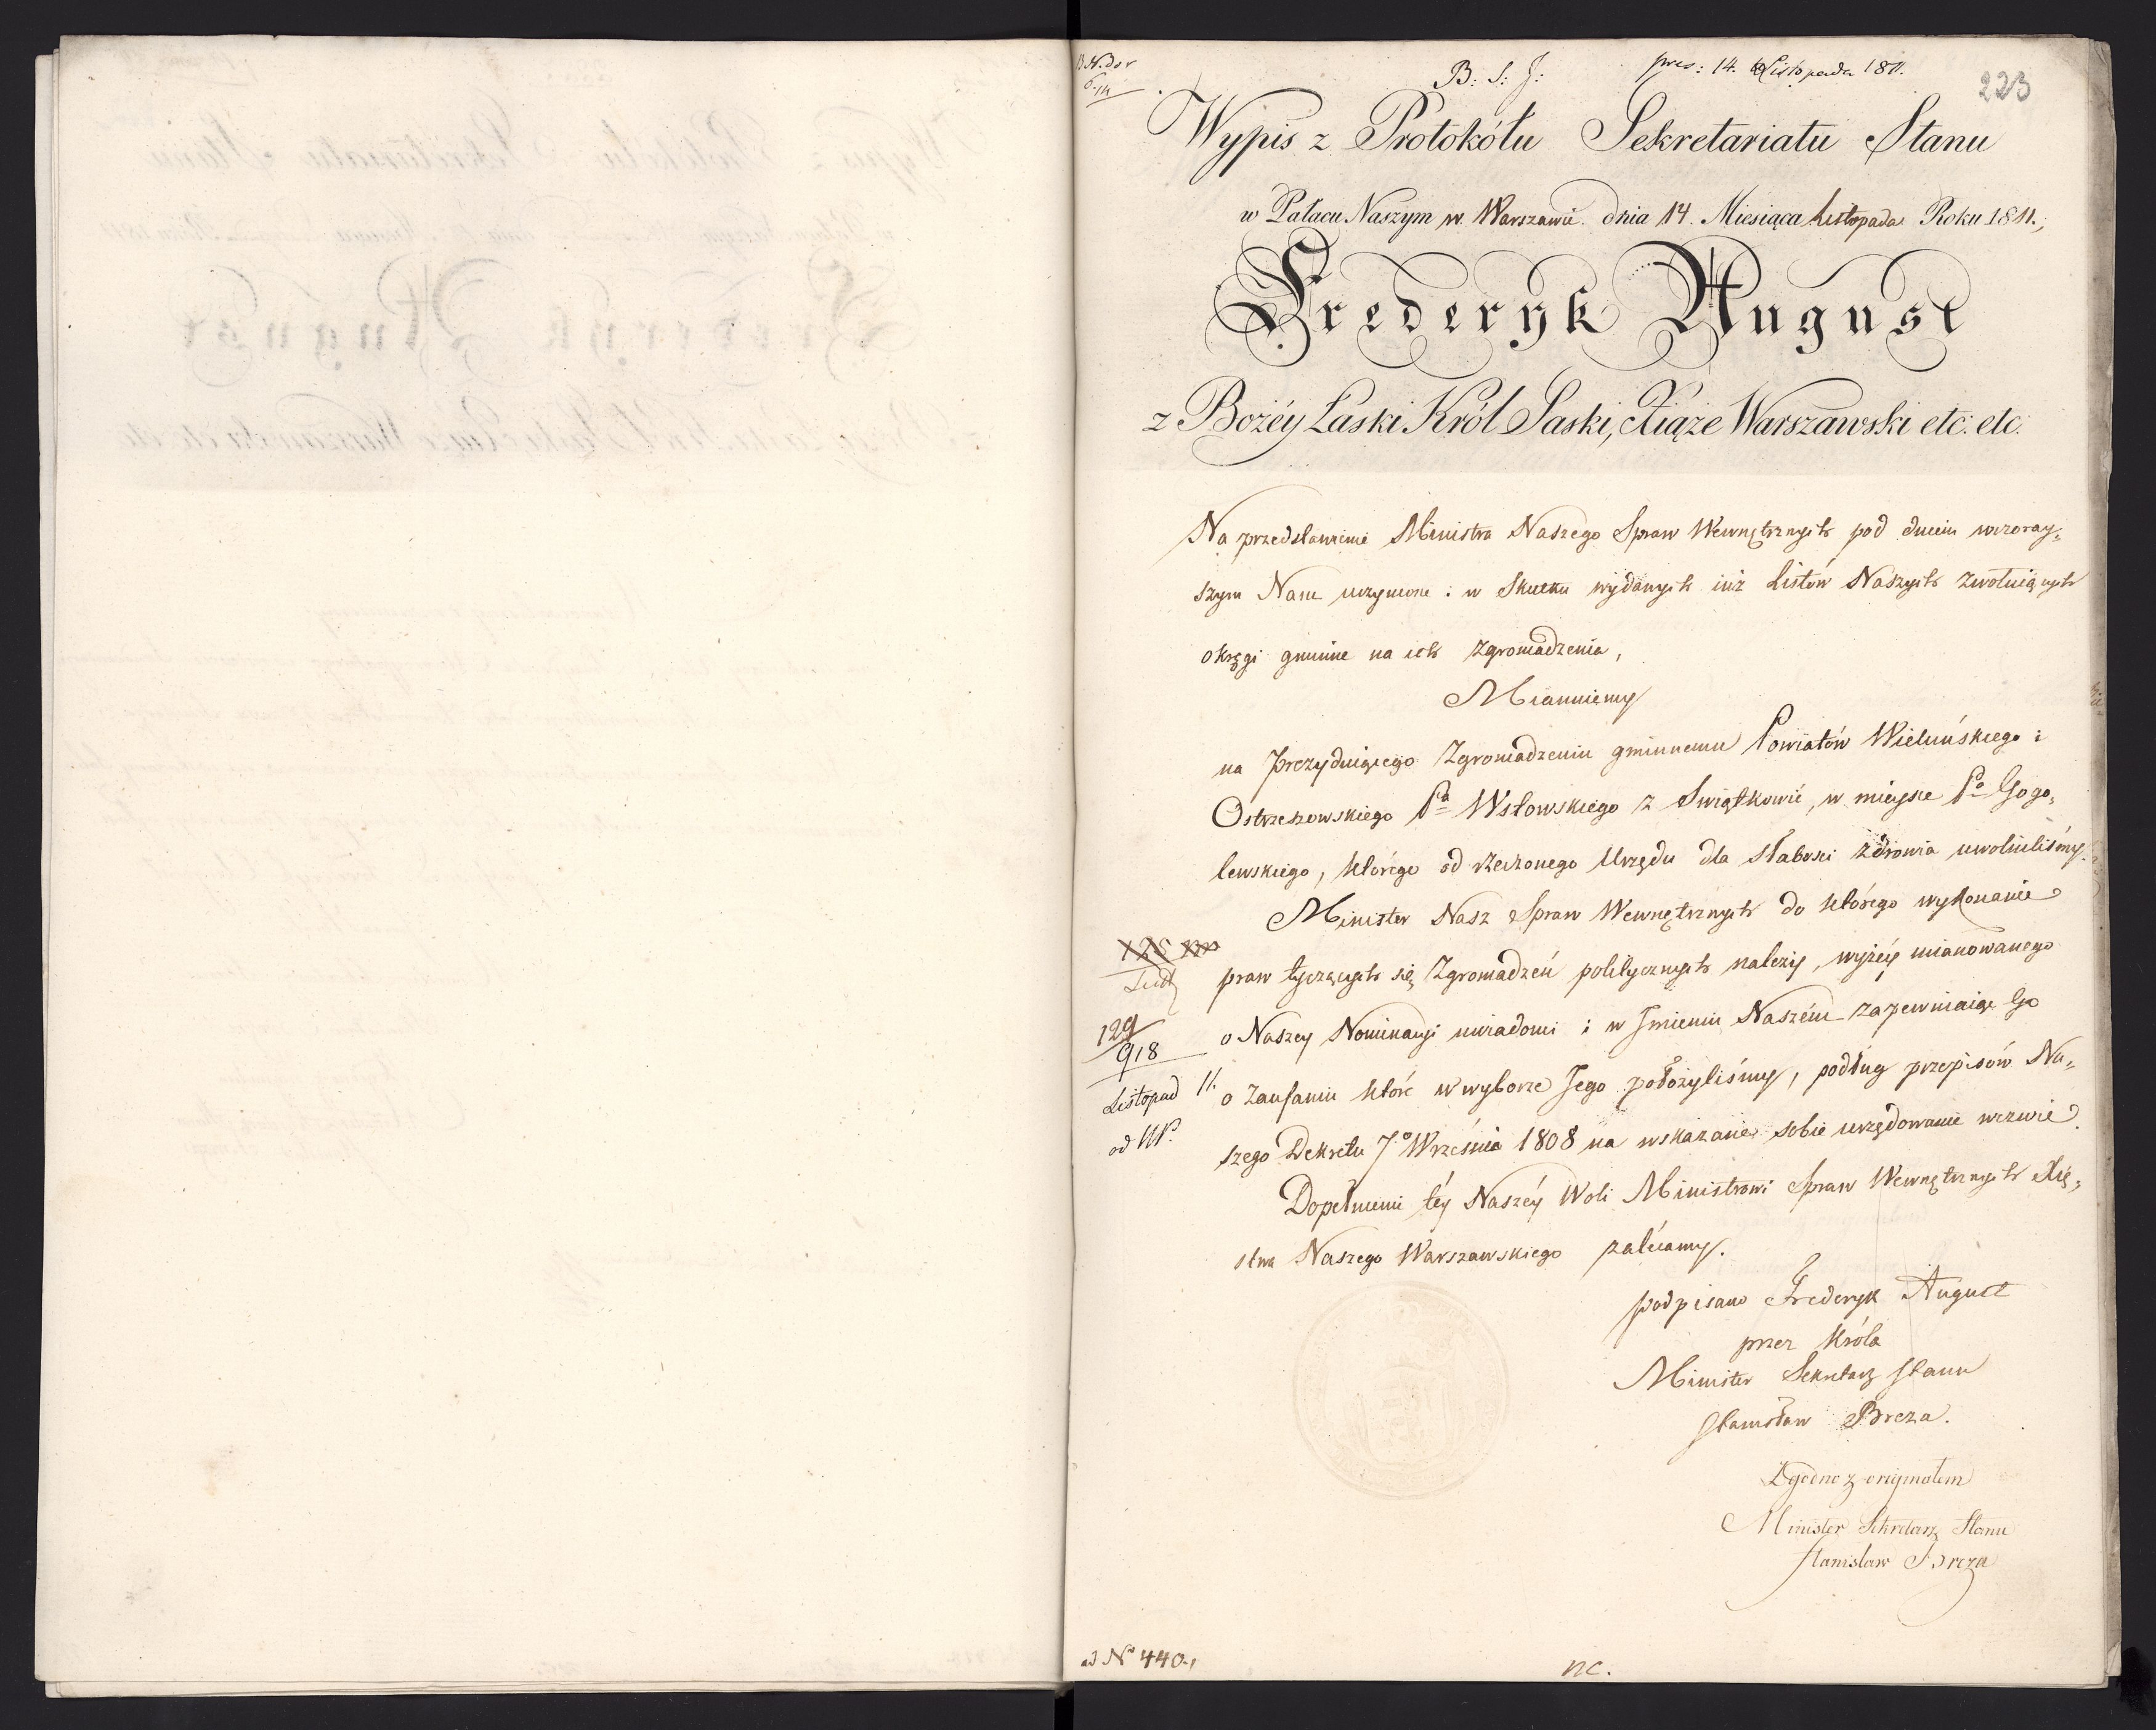 B: S: J:
pres: 14. Listopada 1811.
223
Wypis z Protokółu Sekretariatu Stanu
w Pałacu Naszym w Warszawie dnia 14. Miesiąca Listopada Roku 1811.
Frederyk August
z Bożéy Łaski Król Saski, Xiąże Warszawski etc: etc:
Na przedstawienie Ministra Naszego Spraw Wewnętrznych pod dniem wczoray„
szym Nam uczynione i w Skutku wydanych iuż Listów Naszych zwołuiących
okręgi gminne na ich Zgromadzenia,
Mianuiemy
na Prezyduiącego Zgromadzeniu gminnemu Powiatów Wieluńskiego i
Ostrzeszowskiego Pa Wsłowskiego z Swiątkowic, w mieysce Po Gogo„
lewskiego, którégo od rzeczonego Urzędu dla słabości zdrowia uwolniliśmy.
Minister Nasz Spraw Wewnętrznych do którego wykonanie
praw tyczących się Zgromadzeń politycznych należy, wyżéy mianowanego
o Naszey Nominacyi uwiadomi i w Imieniu Naszém zapewniaiąc Go
o Zaufaniu które w wyborze Jego położyliśmy, podług przepisów Na„
szego Dekretu 7o Września 1808 na wskazane sobie urzędowanie wezwie.
Dopełnienie téy Naszéy Woli Ministrowi Spraw Wewnętrznych Xię„
stwa Naszego Warszawskiego zalécamy.
129
918
Listopad 11.
podpisano Frederyk August
przez Króla
Minister Sekretarz Stanu
Stanisław Breza.
Zgodno z oryginałem
Minister Sekretarz Stanu
Stanisław Breza
ad No 440.
nc.